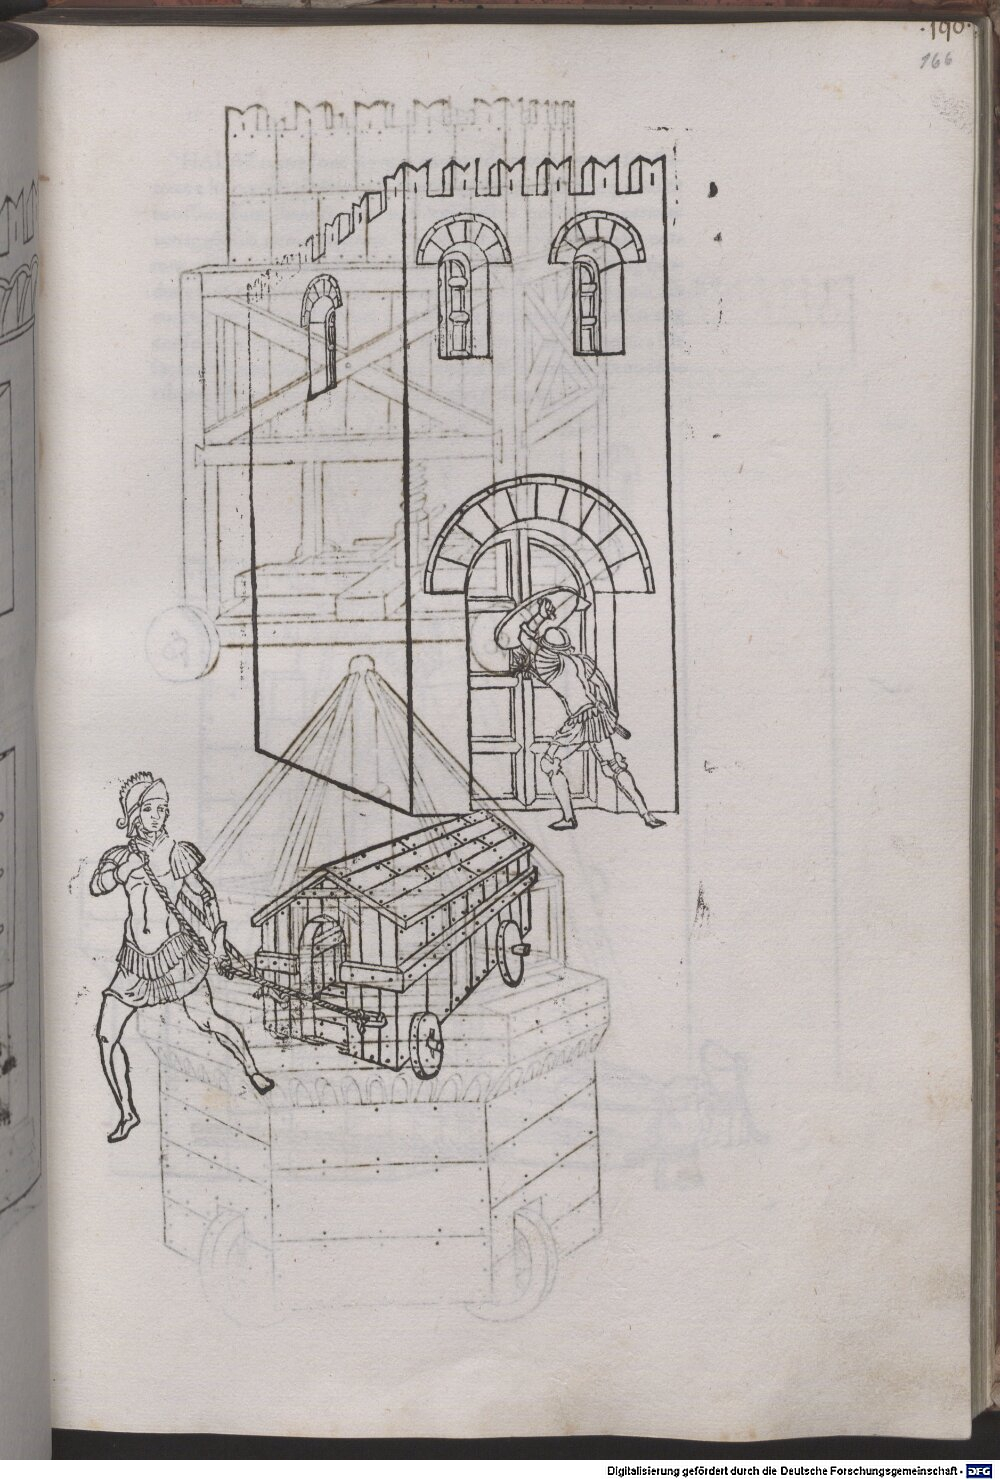 ·190·
166
Digitalisierung gefördert durch die Deutsche Forschungsgemeinschaft - DFG